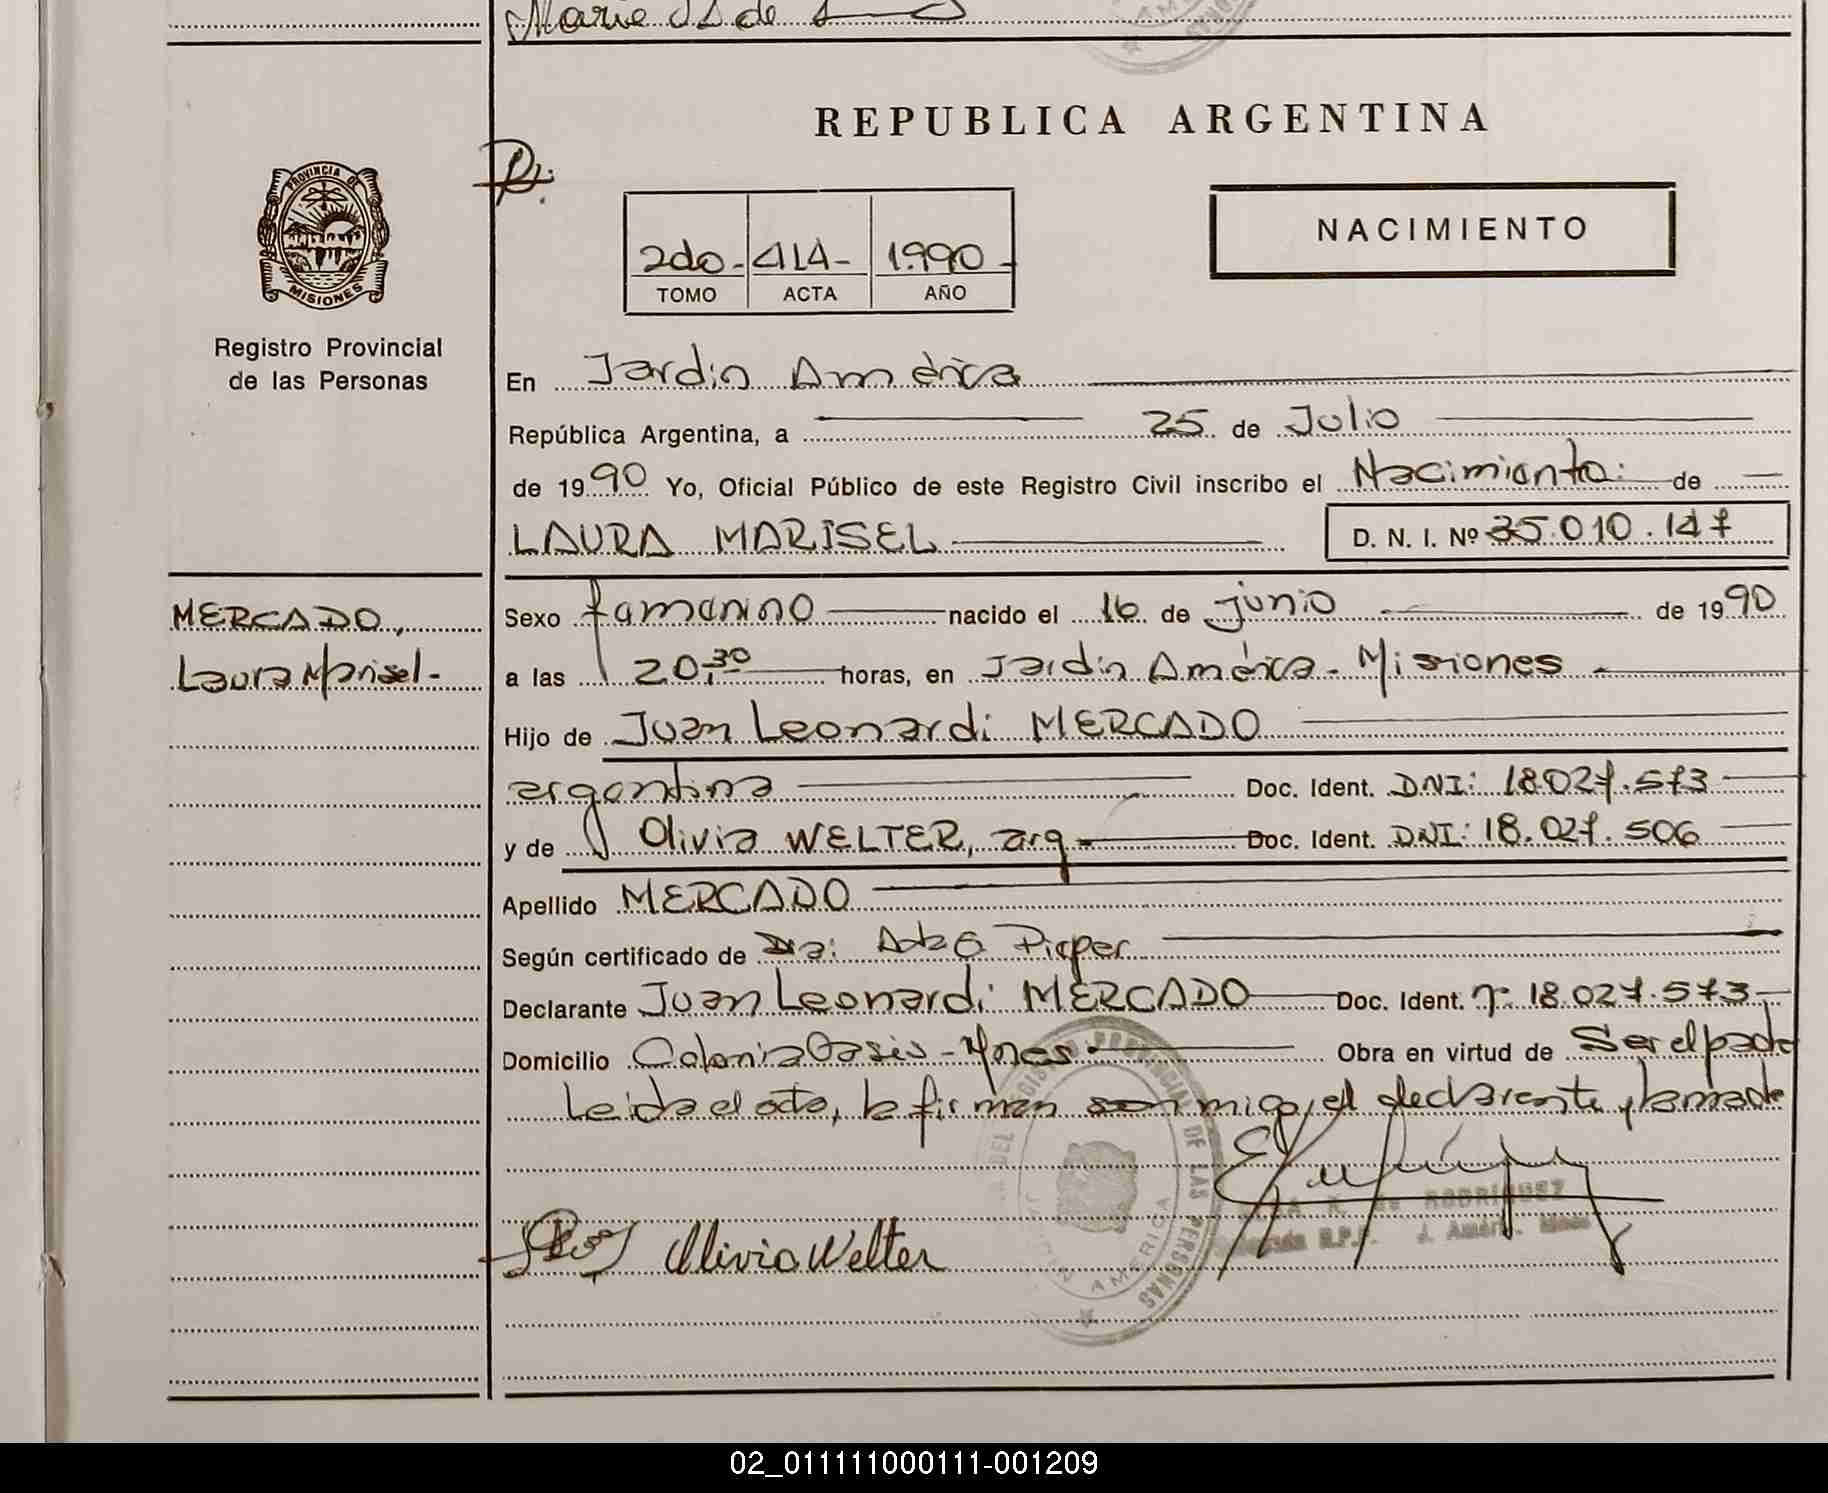 Marie
REPUBLICA ARGENTINA
PROVINCIA DE
MISIONES
Registro Provincial
de las Personas
2do - 414 - 1990 -
TOMO ACTA AÑO
NACIMIENTO
En Jardin América
República Argentina, a 25 de Julio
de 1990 Yo, Oficial Público de este Registro Civil inscribo el Nacimiento: de
LAURA MARISEL D. N. I. Nº 35.010.147
MERCADO,
Laura Marisel -
Sexo femenino nacido el 16 de junio de 1990
a las 20,30 horas, en Jardin América - Misiones
Hijo de Juan Leonardi MERCADO
argentina Doc. Ident. DNI: 18.027.573
y de Olivia WELTER, arg. Doc. Ident. DNI: 18.027.506
Apellido MERCADO
Según certificado de Dra: Ada G Pieper
Declarante Juan Leonardi MERCADO Doc. Ident. 18.027.573
Domicilio Colonia Oasis - Mnes. Obra en virtud de Ser el padre
Leida el acta, la firman conmigo, el declarante y la madre
Olivia Welter
PROVINCIAL DE LAS PERSONAS
JARDIN AMERICA
K. de RODRIGUEZ
R.P.P. J. Améri. Mnes
02_011111000111-001209